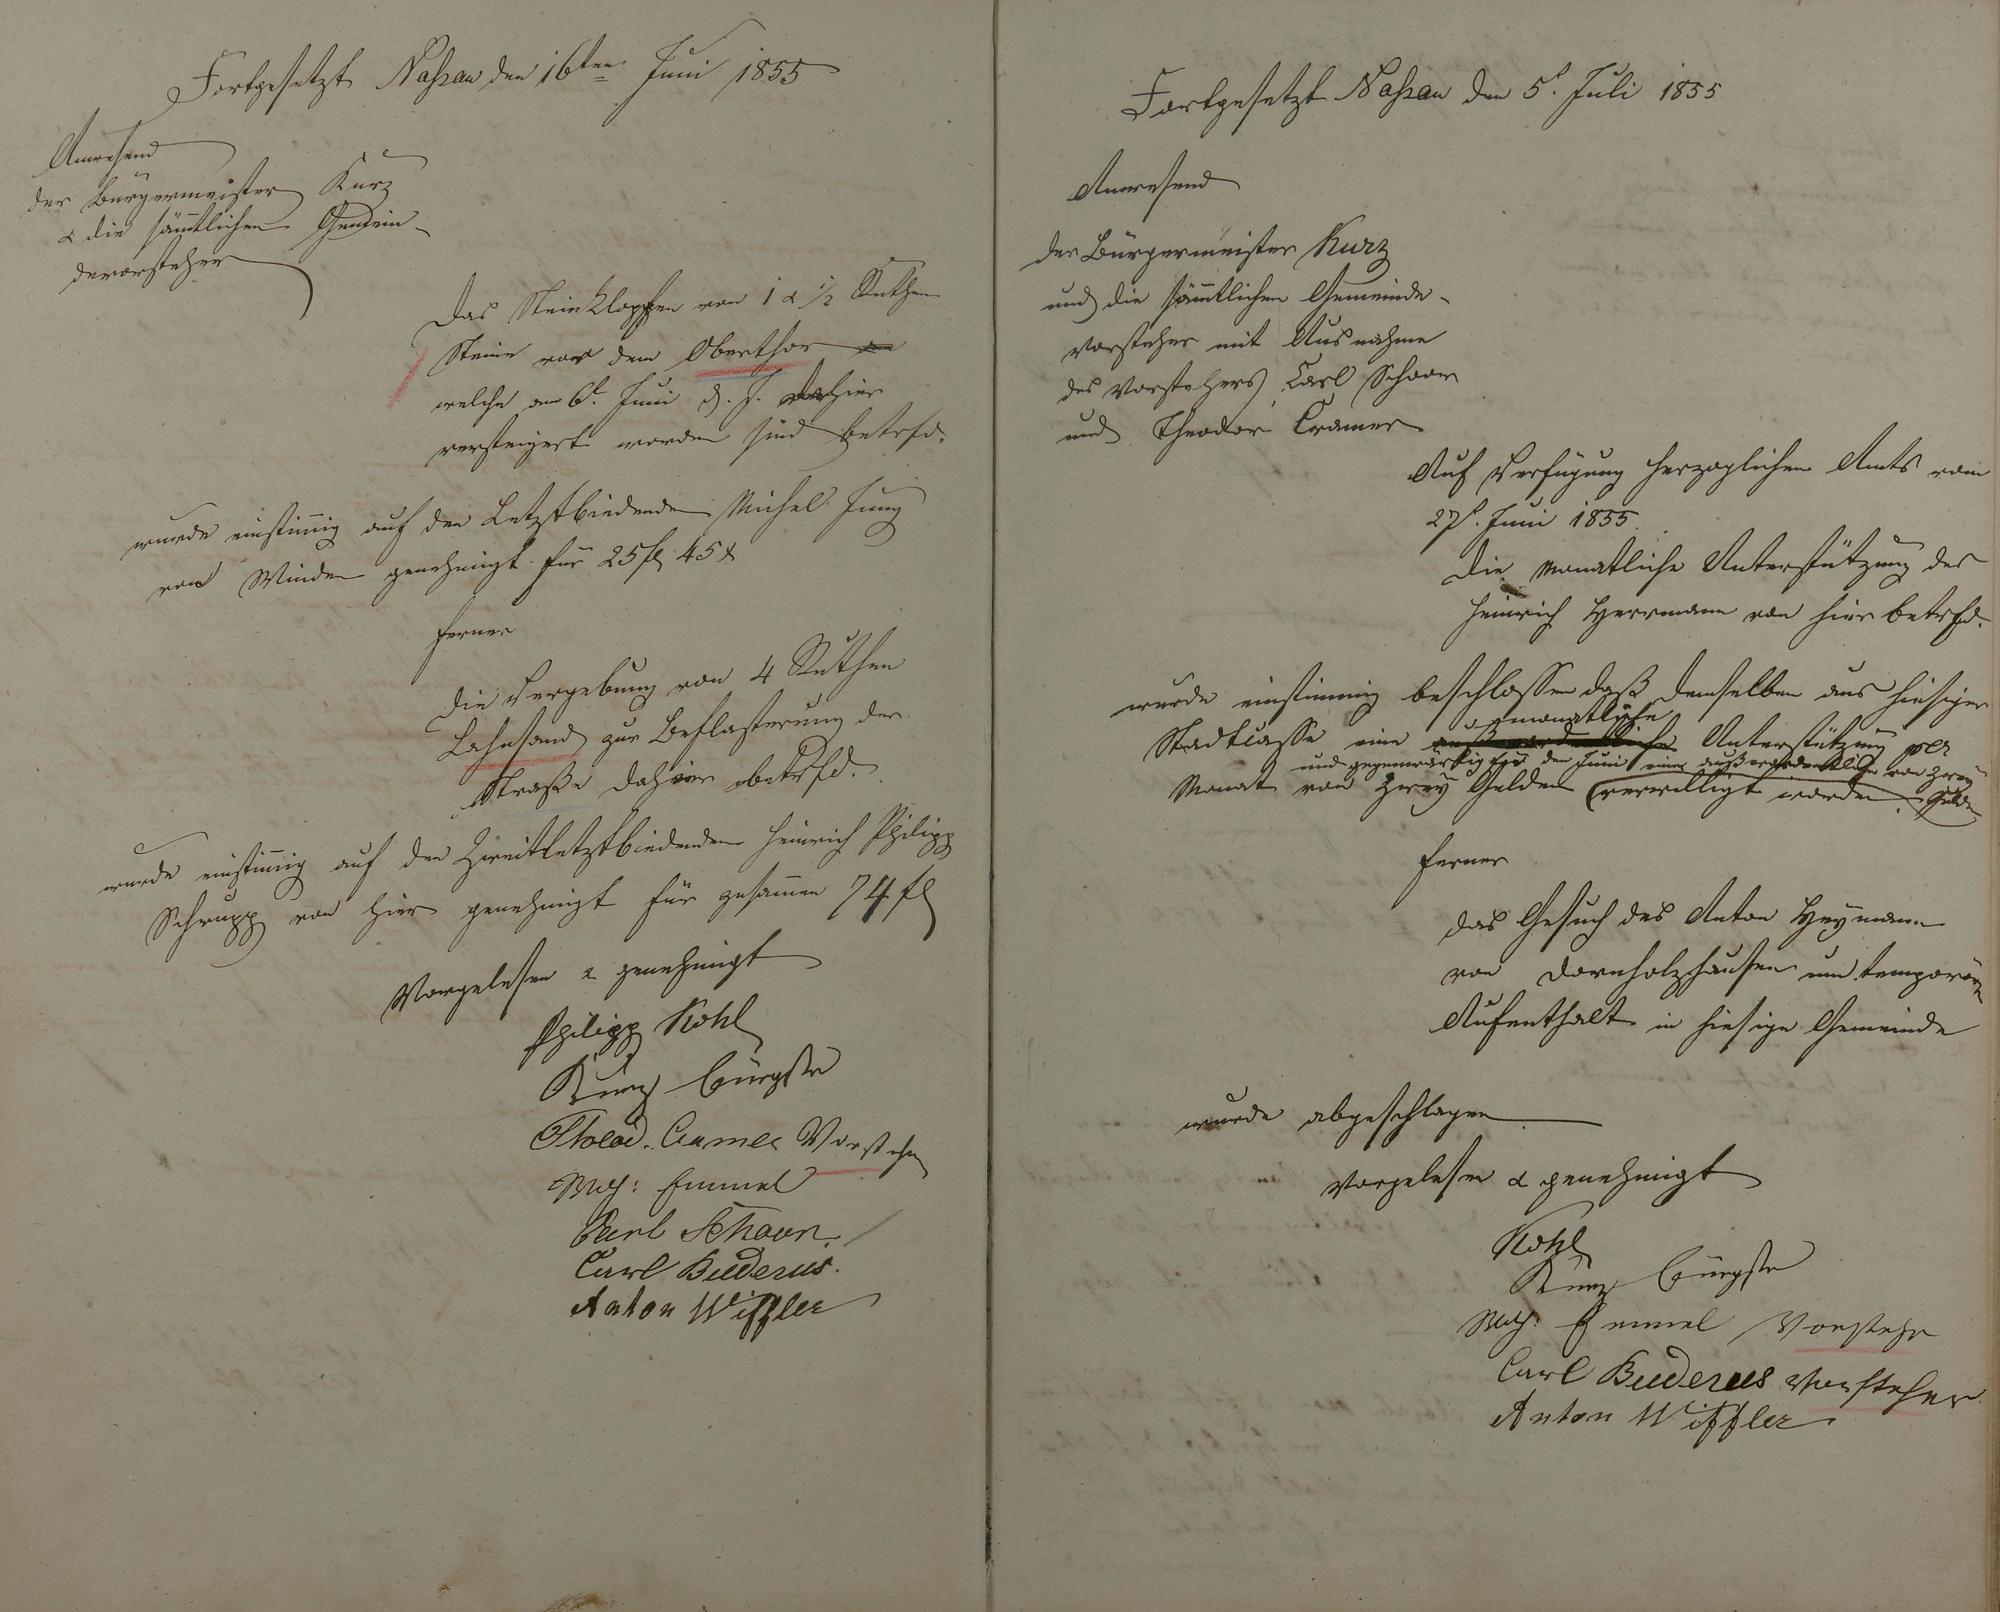 Fortgesetzt Naßau den 16ten Juni 1855
Anwesend
der Bürgermeister Kurz
& die sämtlichen Gemein-
devorsteher
Das Steinklopfen von 1 & 1/2 Ruthen
Steine vor dem Oberthor
welche am 6t. Juni d. J. dahier
versteigert worden sind betrfd.
wurde einstimig auf den Letztbiedenden Michel Jung
von Winden genehmigt für 25 fl 45 x
ferner
die Vergebung von 4 Ruthen
Lahnsand zur Beflasterung der
Straße dahier betrfd.
wurde einstimig auf den Zweitletztbiedenden Heinrich Philipp
Schrupp von hier genehmigt für zusamen 74 fl
Vorgelesen & genehmigt
Philipp Kohl
Kurz Bürgstr
Theod. Cramer Vorsteher
Mch: Emmel
Carl Schoor
Carl Buderus.
Anton Wiffler
Fortgesetzt Naßau den 5t. Juli 1855
Anwesend
der Bürgermeister Kurz
und die sämtlichen Gemeinde-
vorsteher mit Ausnahme
des Vorstehers Carl Schoor
und Theodor Cramer
Auf Verfügung Herzoglichen Amts vom
27t. Juni 1855.
Die monatliche Unterstützung des
Heinrich Herrmann von hier betrfd.
wurde einstimmig beschlossen daß demselben aus hiesiger
monatliche
Stadtcasse eine außerordentliche Unterstützung per
und gegenwärtig für den Juni eine außerordentliche von zwey Gulden
Monat von zwey Gulden verwilligt worden
ferner
das Gesuch des Anton Heymann
von Dornholzhausen um temporären
Aufenthalt in hiesige Gemeinde
wurde abgeschlagen
Vorgelesen & genehmigt
Kohl
Kurz Bürgstr
Mch: Emmel Vorsteher
Carl Buderus Vorsteher
Anton Wiffler